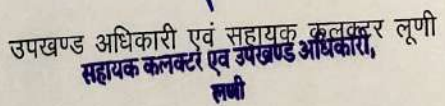 उपखण्ड अधिकारी एवं सहायक कलक्टर लूणी
सहायक कलक्टर एव उपखण्ड अधिकारी,
लूणी